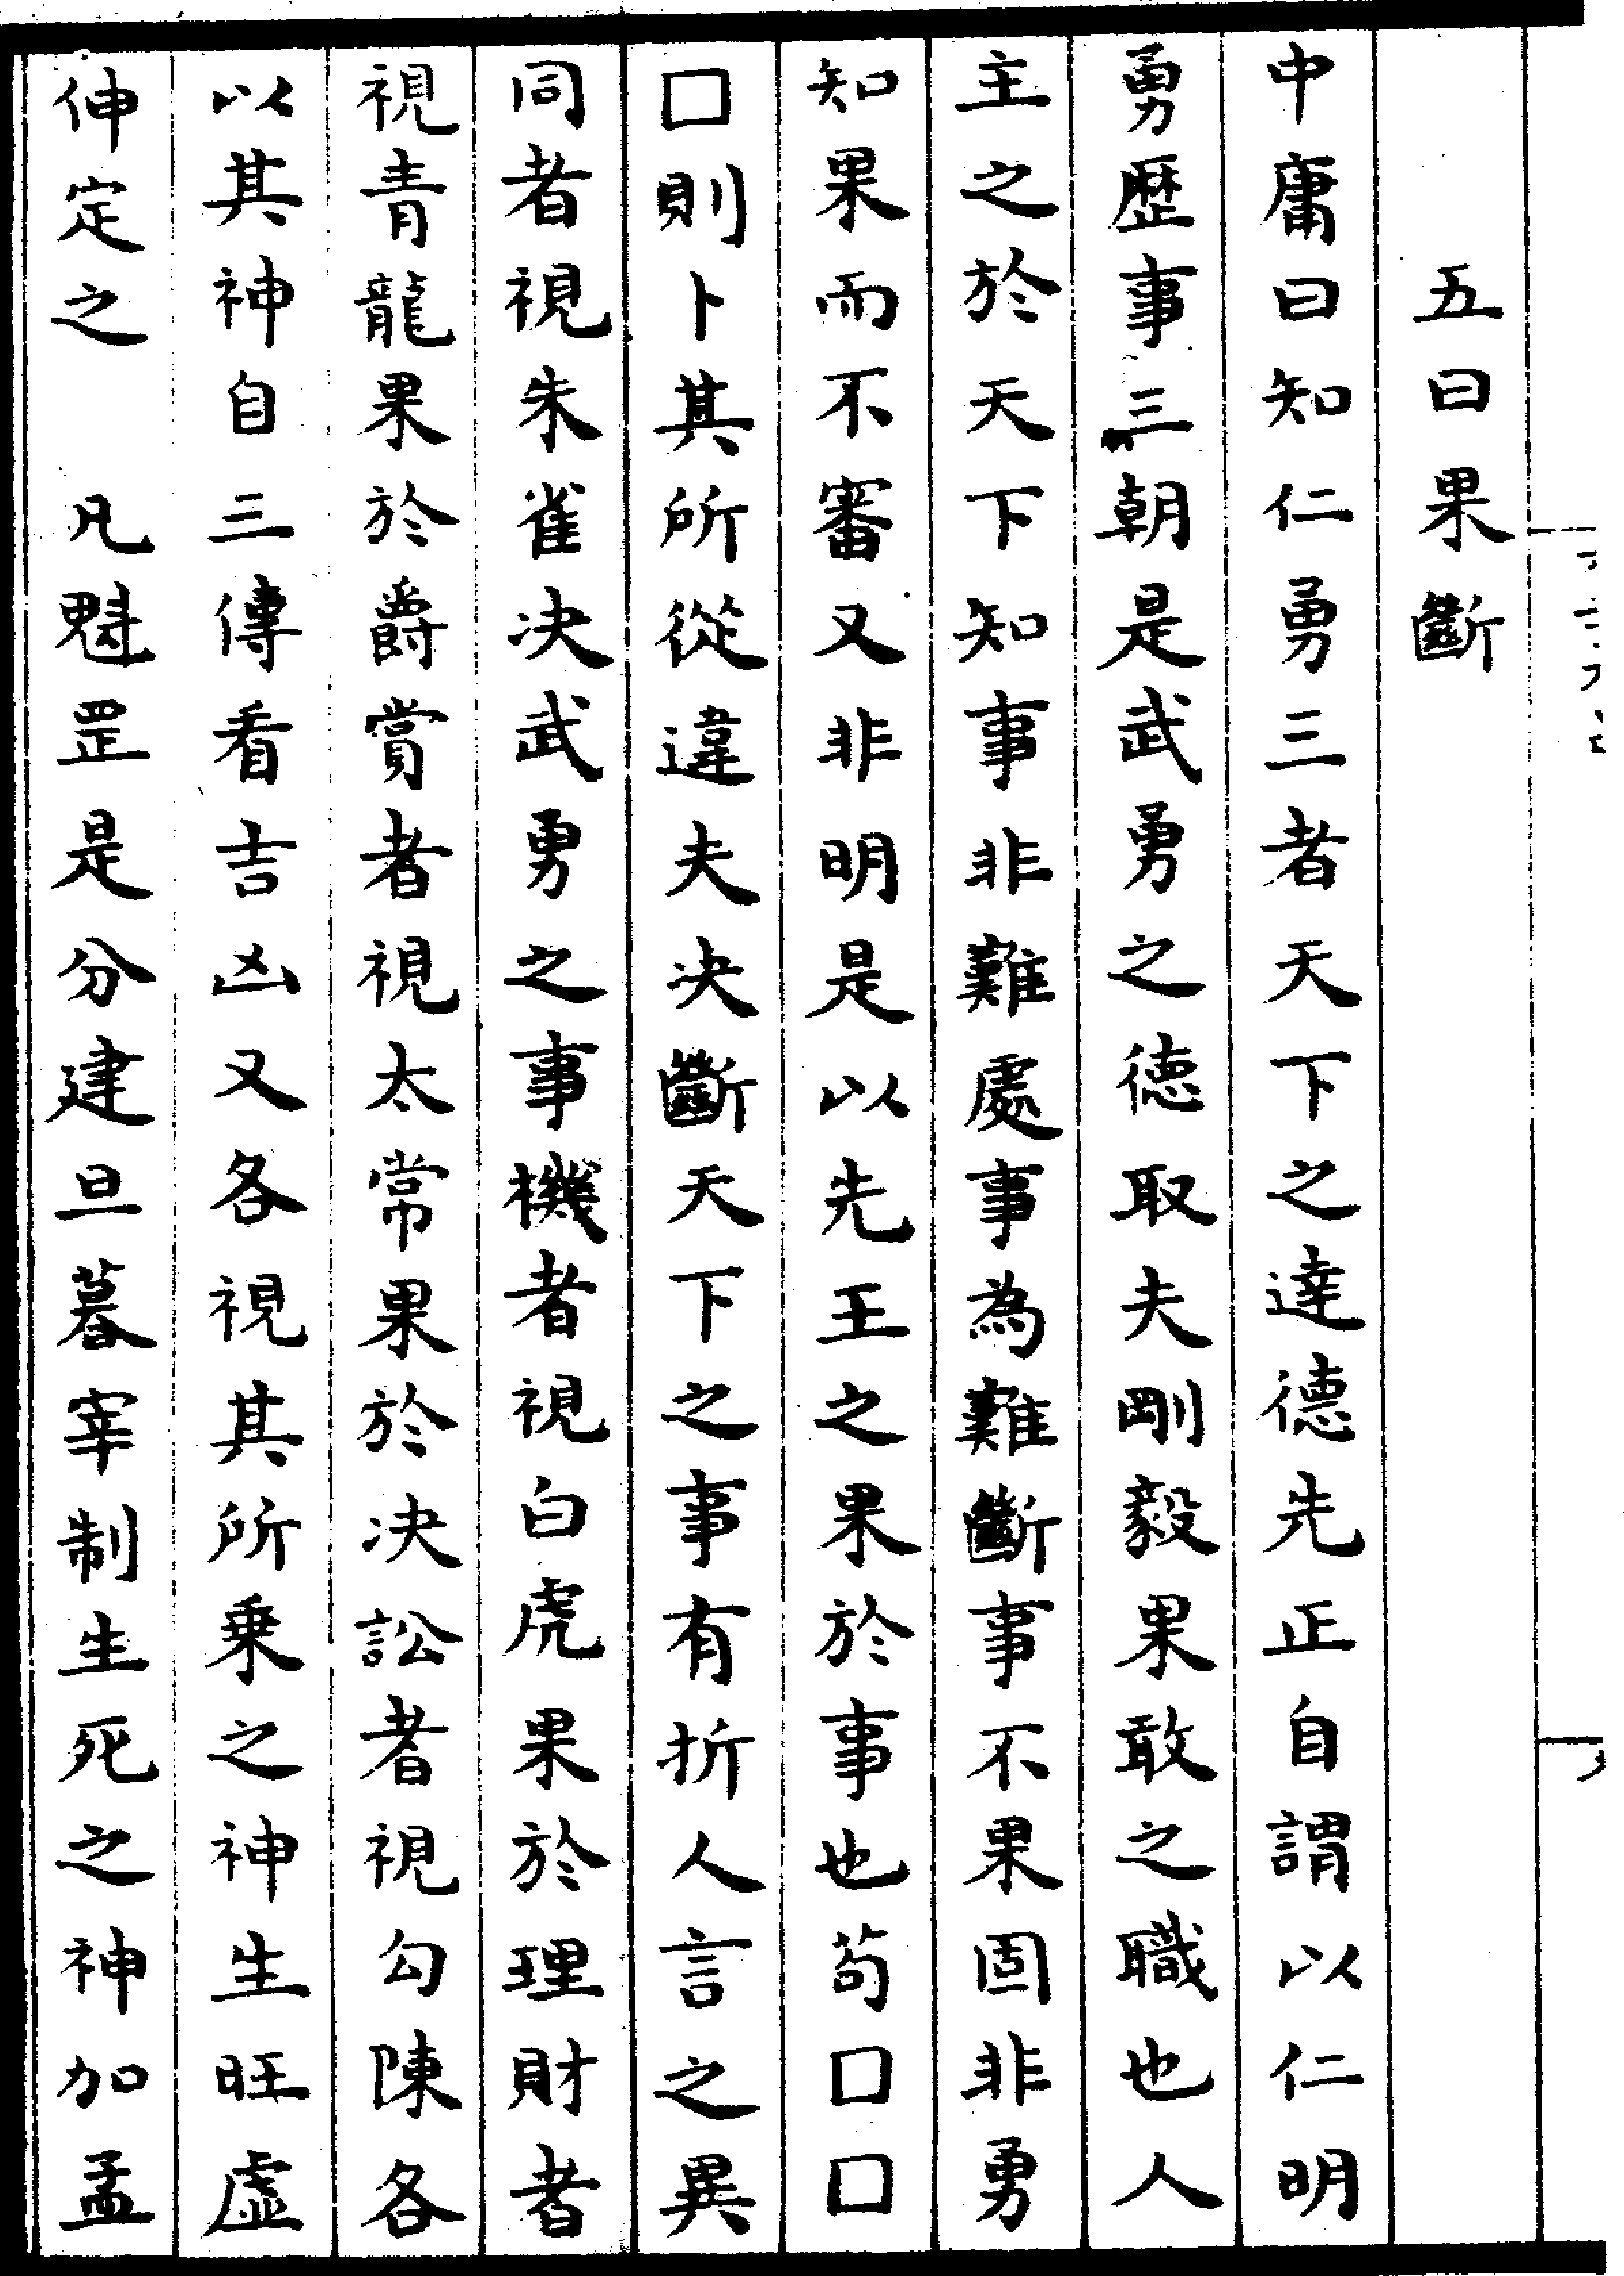 五曰果斷
中庸曰知仁勇三者天下之達德先正自謂以仁明
勇歷事三朝是武勇之德取夫剛毅果敢之職也人
主之於天下知事非難處事為難斷事不果固非勇
知果而不審又非明是以先王之果於事也苟囗囗
囗則卜其所從違夫決斷天下之事有折人言之異
同者視朱雀決武勇之事機者視白虎果於理財者
視青龍果於爵賞者視太常果於決訟者視勾陳各
以其神自三傳看吉凶又各視其所乘之神生旺虛
伸定之　凡魁罡是分建旦暮宰制生死之神加孟